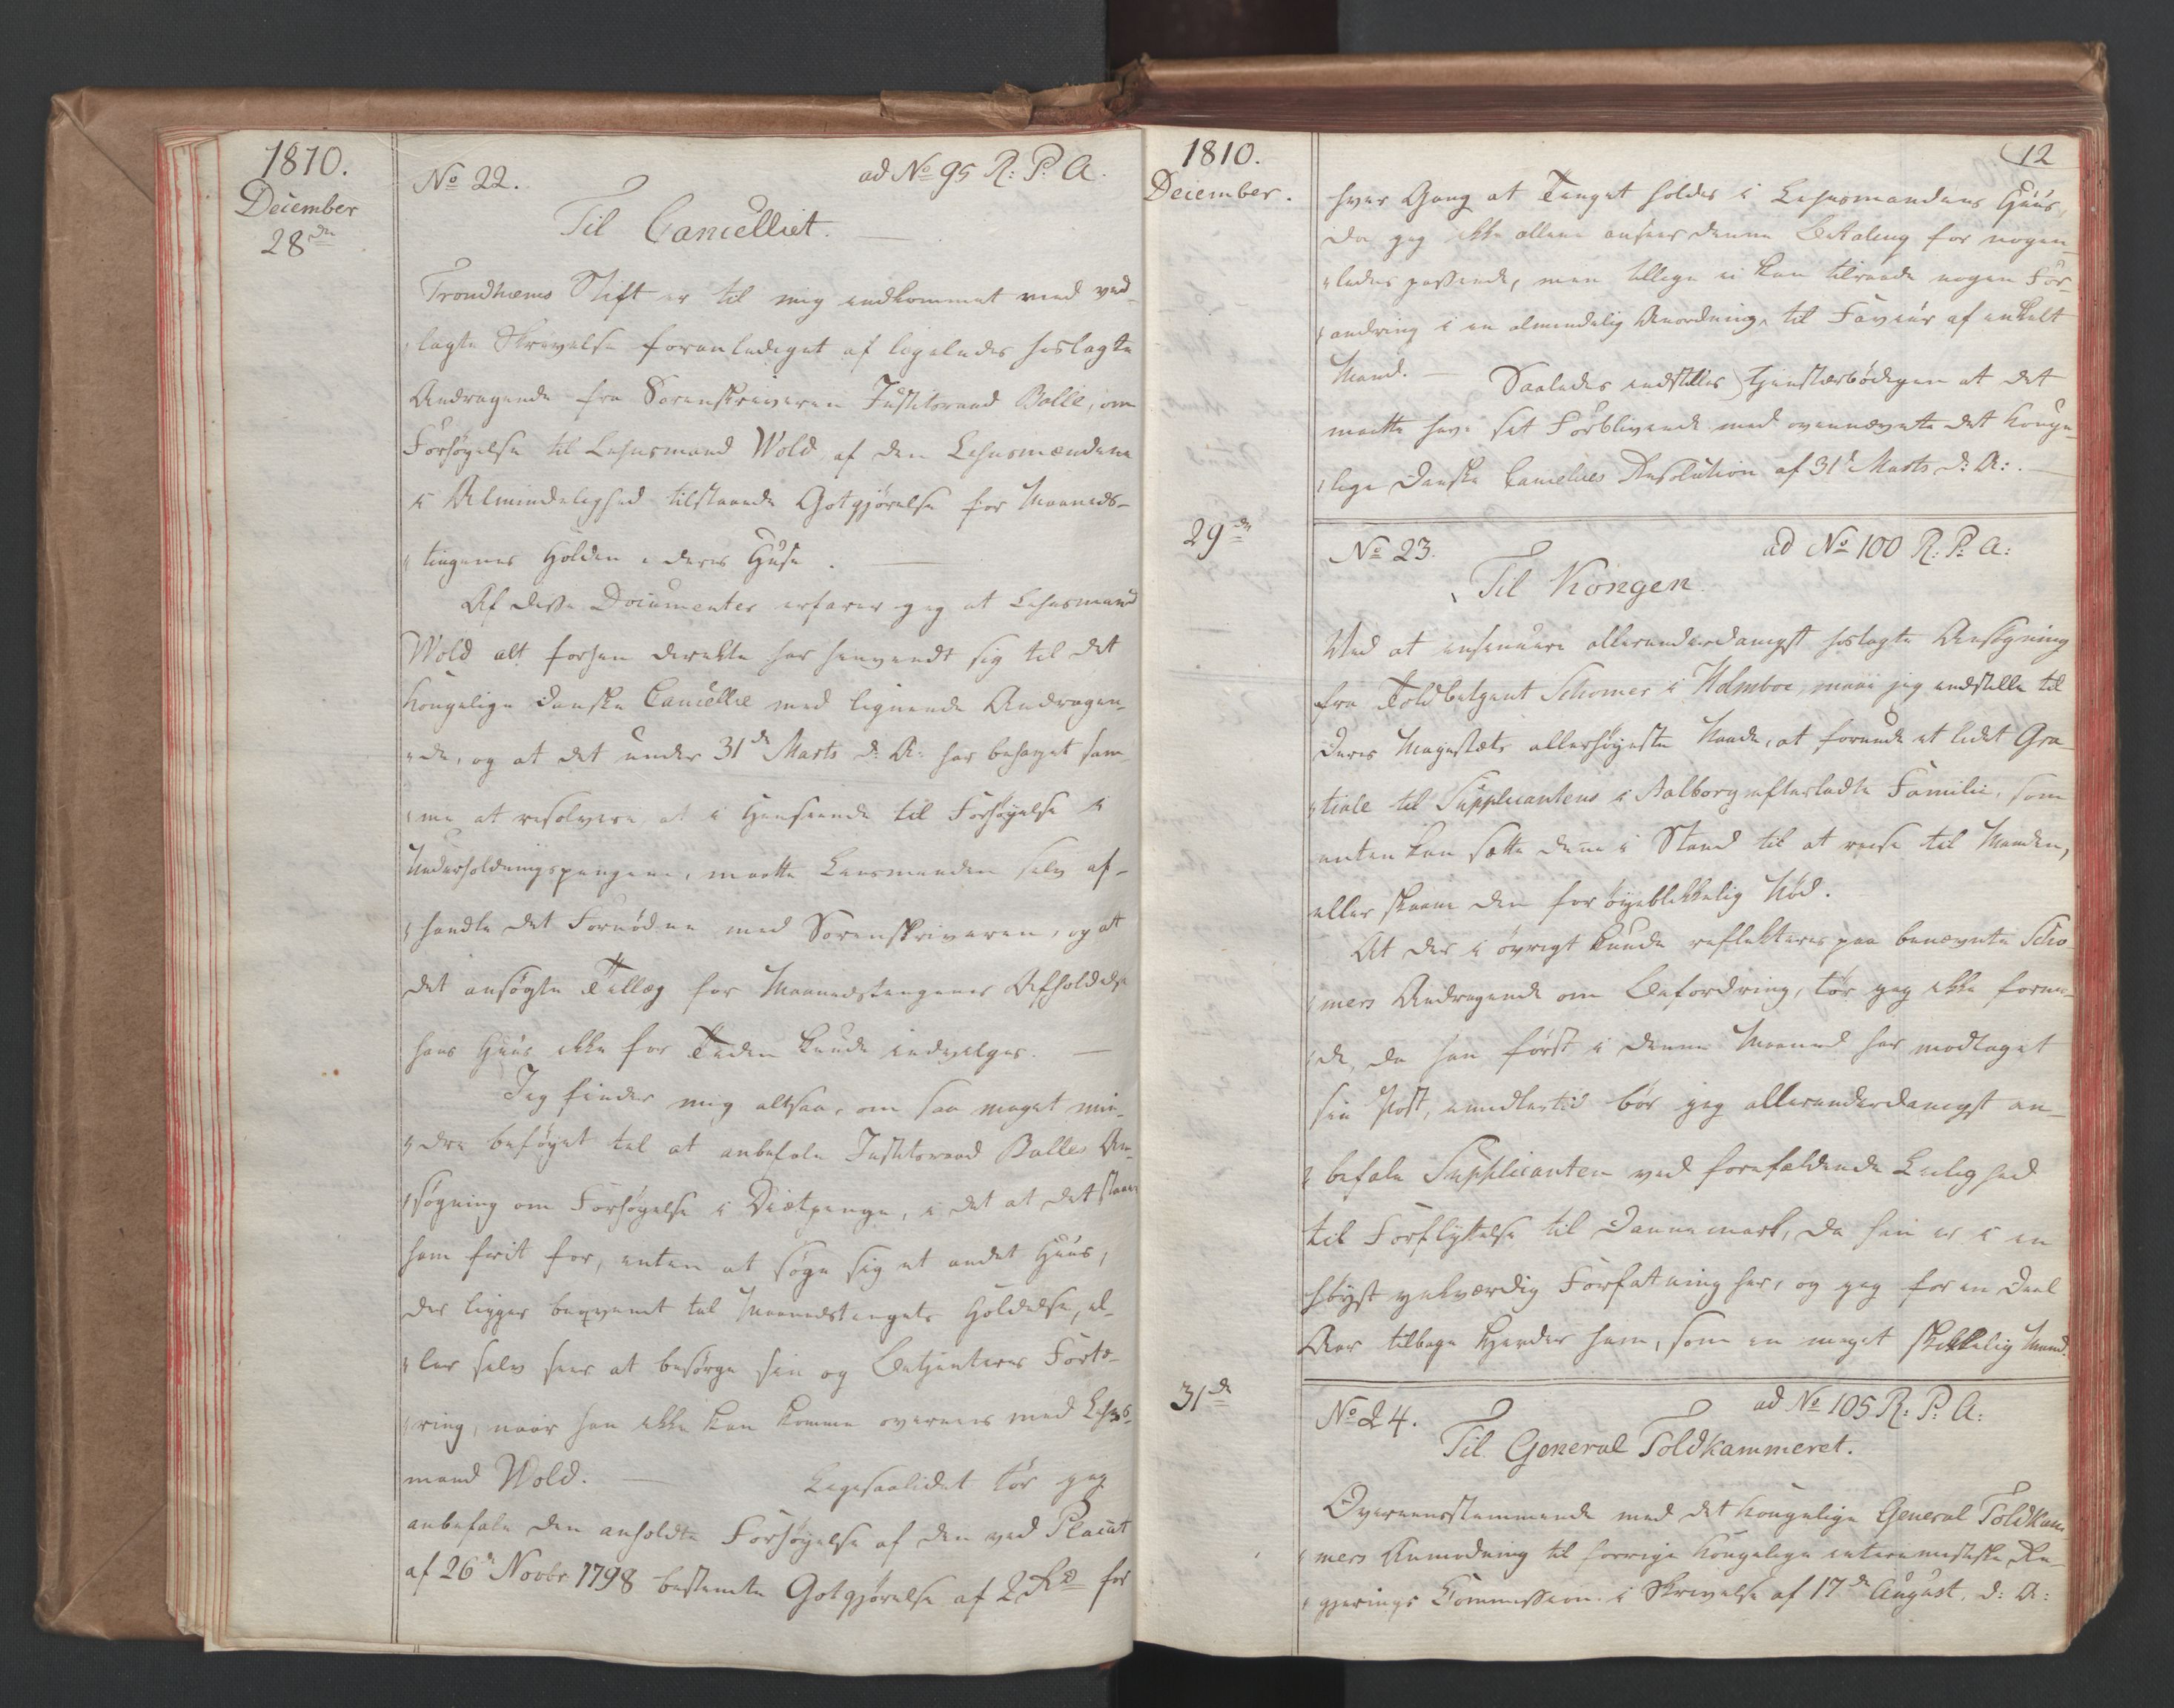 1810.
December
28de
No 22.
ad No 95 R: P: A.
Til Cancelliet.
Trondhiems Stift er til mig indkommet med ved-
lagte Skrivelse foranlediget af ligeledes hoslagte
Andragende fra Sorenskriveren Justitsraad Balle, om
Forhøyelse til Lehnsmand Wold, af den Lehnsmændene
i Almindelighed tilstaaede Gotgjørelse for Maaneds-
tingenes Holden i deres Huse.
Af disse Documenter erfarer jeg at Lehnsmand
Wold alt forhen derekte har henvendt sig til det
Kongelige Danske Cancellie med lignende Andragen-
de, og at det under 31de Marts d: A: har behaget sam-
me at resolvere, at i Henseende til Forhøyelse i
Underholdningspengene, maatte Lensmanden selv af-
handle det Fornødne med Sorenskriveren, og at
det ansøgte Tillæg for Maanedstingenes Afholdelse
hans Huus ikke for Tiden kunde indvilges.
Jeg finder mig altsaa, om saa meget min-
dre beføyet til at anbefale Justitsraad Balles An-
søgning om Forhøyelse i Diætpenge, i det at det staaer
ham frit for, enten at søge sig et andet Huus,
der ligger beqvemt til Maanedstingets Holdelse, el-
ler selv see at besørge sin og Betjenteres Fortæ-
ring, naar han ikke kan komme overeens med Lehns-
mand Wold.
Ligesaalidet tør jeg
anbefale den anholdte Forhøyelse af den ved Placat
af 26de Novbr 1798 bestemte Gotgjørelse af 2 Rd for
1810.
December.
12
hver Gang at Tinget holdes i Lehnsmandens Huus,
da jeg ikke allene anseer denne Betaling for nogen-
ledes passende, men tillige ei kan tilraade nogen For-
andring i en almindelig Anordning, til Faveur af enkelt
Mand. Saaledes indstilles tjenstærbødigen at det
maatte have sit Forblivende med ovennævnte det Konge-
lige Danske Cancelies Resolution af 31te Marts d: A:.
29de
No 23.
ad No 100 R: P: A:
Til Kongen.
Ved at insinuere allerunderdanigst hoslagte Ansøgning
fra Toldbetjent Schomer i Holmboe, maae jeg indstille til
Deres Majestæts allerhøyeste Naade, at forunde et lidet Gra-
tiale til Supplicantens i Aalborg efterladte Familie, som
enten kan sætte denne i Stand til at reise til Manden,
eller skaane den for øyeblikkelig Nød.
At der i øvrigt kunde reflekteres paa benævnte Scho-
mers Andragende om Befordring, tør jeg ikke forme-
de, da han først i denne Maaned har modtaget
sin Post, imidlertid bør jeg allerunderdanigst an-
befale Supplicanten ved forefaldende Leilighed
til Forflyttelse til Dannemark, da han er i en
høyst ynkværdig Forfatning her, og jeg for en Deel
Aar tilbage kjender ham, som en meget skikkelig Mand.
31de
No 24.
ad No 105 R: P: A:
Til General Toldkammeret.
Overeensstemmende med det Kongelige General Toldkam-
mers Anmodning til forrige Kongelige interimistiske Re-
gjerings Commission i Skrivelse af 17de August, d: A: